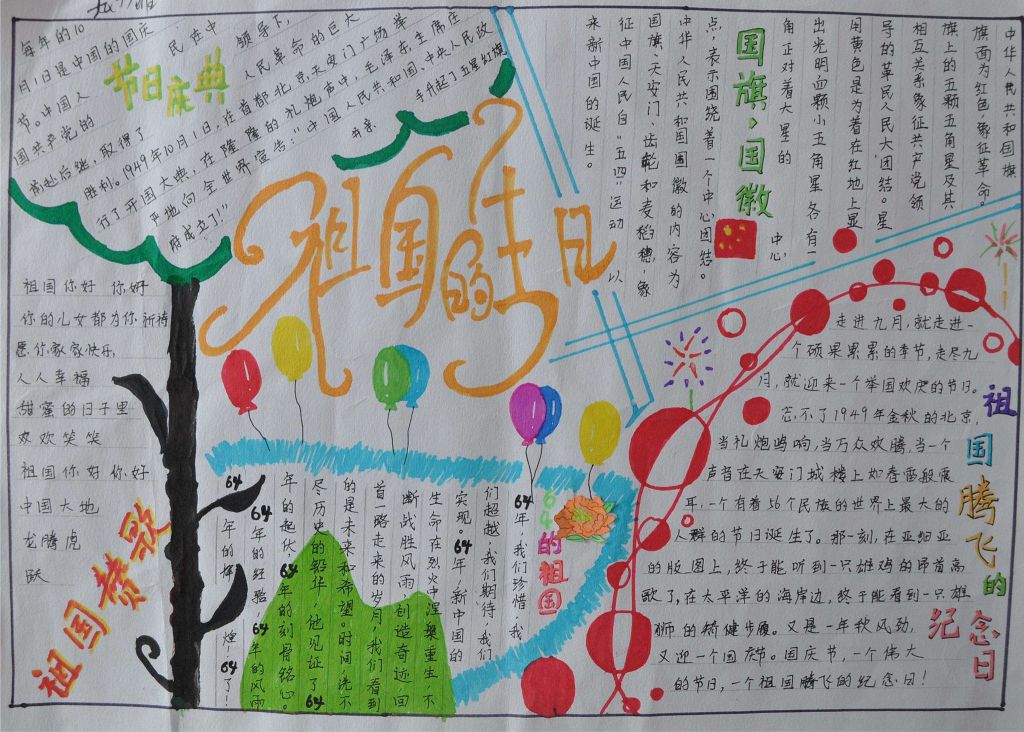 每年的10
月1日是中国的国庆
节。中国人
民在中
国共产党的
领导下,
前赴后继,取得了
人民革命的巨大
胜利。1949年10月1日,在首都北京天安门广场举
行了开国大典,在隆隆的礼炮声中,毛泽东主席庄
严地向全世界宣告:"中国人民共和国、中央人民政
府成立了!"
并亲
手升起了五星红旗
节日庆典
祖国的生日
中华人民共和国旗
旗面为红色,象征革命。
旗上的五颗五角星及其
相互关系象征共产党领
导的革民人民大团结。星
用黄色是为着在红地上显
出光明,四颗小五角星各有一
角正对着大星的
中心
点,表示围绕着一个中心团结。
国旗、国徽
中华人民共和国国徽的内容为
国旗、天安门、齿轮和麦稻穗,象
征中国人民自"五四"运动以
来新中国的诞生。
祖国你好 你好
你的儿女都为你祈祷
愿你家家快乐,
人人幸福
甜蜜的日子里
欢欢笑笑
祖国你好 你好
中国大地
龙腾虎
跃
祖国赞歌
64的祖国
64年,我们珍惜,我
们超越,我们期待,我们
实现。64年,新中国的
生命在烈火中涅槃重生,不
断战胜风雨,创造奇迹,回
首一路走来的岁月,我们看到
的是未来和希望。时间洗不
尽历史的铅华,他见证了64
年的起伏,64年的刻骨铭心。
64年的经验,64年的风雨
64年的辉煌,64了!
走进九月,就走进一
个硕果累累的季节,走尽九
月,就迎来一个举国欢庆的节日。
忘不了1949年金秋的北京,
当礼炮鸣响,当万众欢腾,当一个
声音在天安门城楼上如春雷般震
耳,一个有着56个民族的世界上最大的
人群的节日诞生了。那一刻,在亚细亚
的版图上,终于能听到一只雄鸡的昂首高
歌了,在太平洋的海岸边,终于能看到一只雄
狮的矫健步履。又是一年秋风劲,
又迎一个国庆节。国庆节,一个伟大
的节日,一个祖国腾飞的纪念日!
祖国腾飞的
纪念日